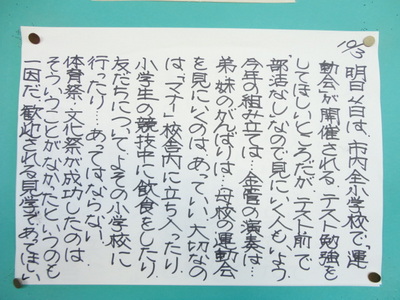 10/3
明日4日は、市内全小学校で「運
動会」が開催される。テスト勉強を
してほしいところだが、テスト前で
「部活なし」なので見にいく人もいよう。
今年の組み立ては…金管の演奏は…
弟・妹のがんばりは…母校の運動会
を見にいくのはあっていい。大切なの
は、「マナー」校舎内に立ち入ったり、
小学生の競技中に飲食をしたり、
友だちについてよその小学校に
行ったり…あってはならない。
体育祭・文化祭が成功したのは、
そういうことがなかったというのも
一因だ。歓迎される見学であってほしい